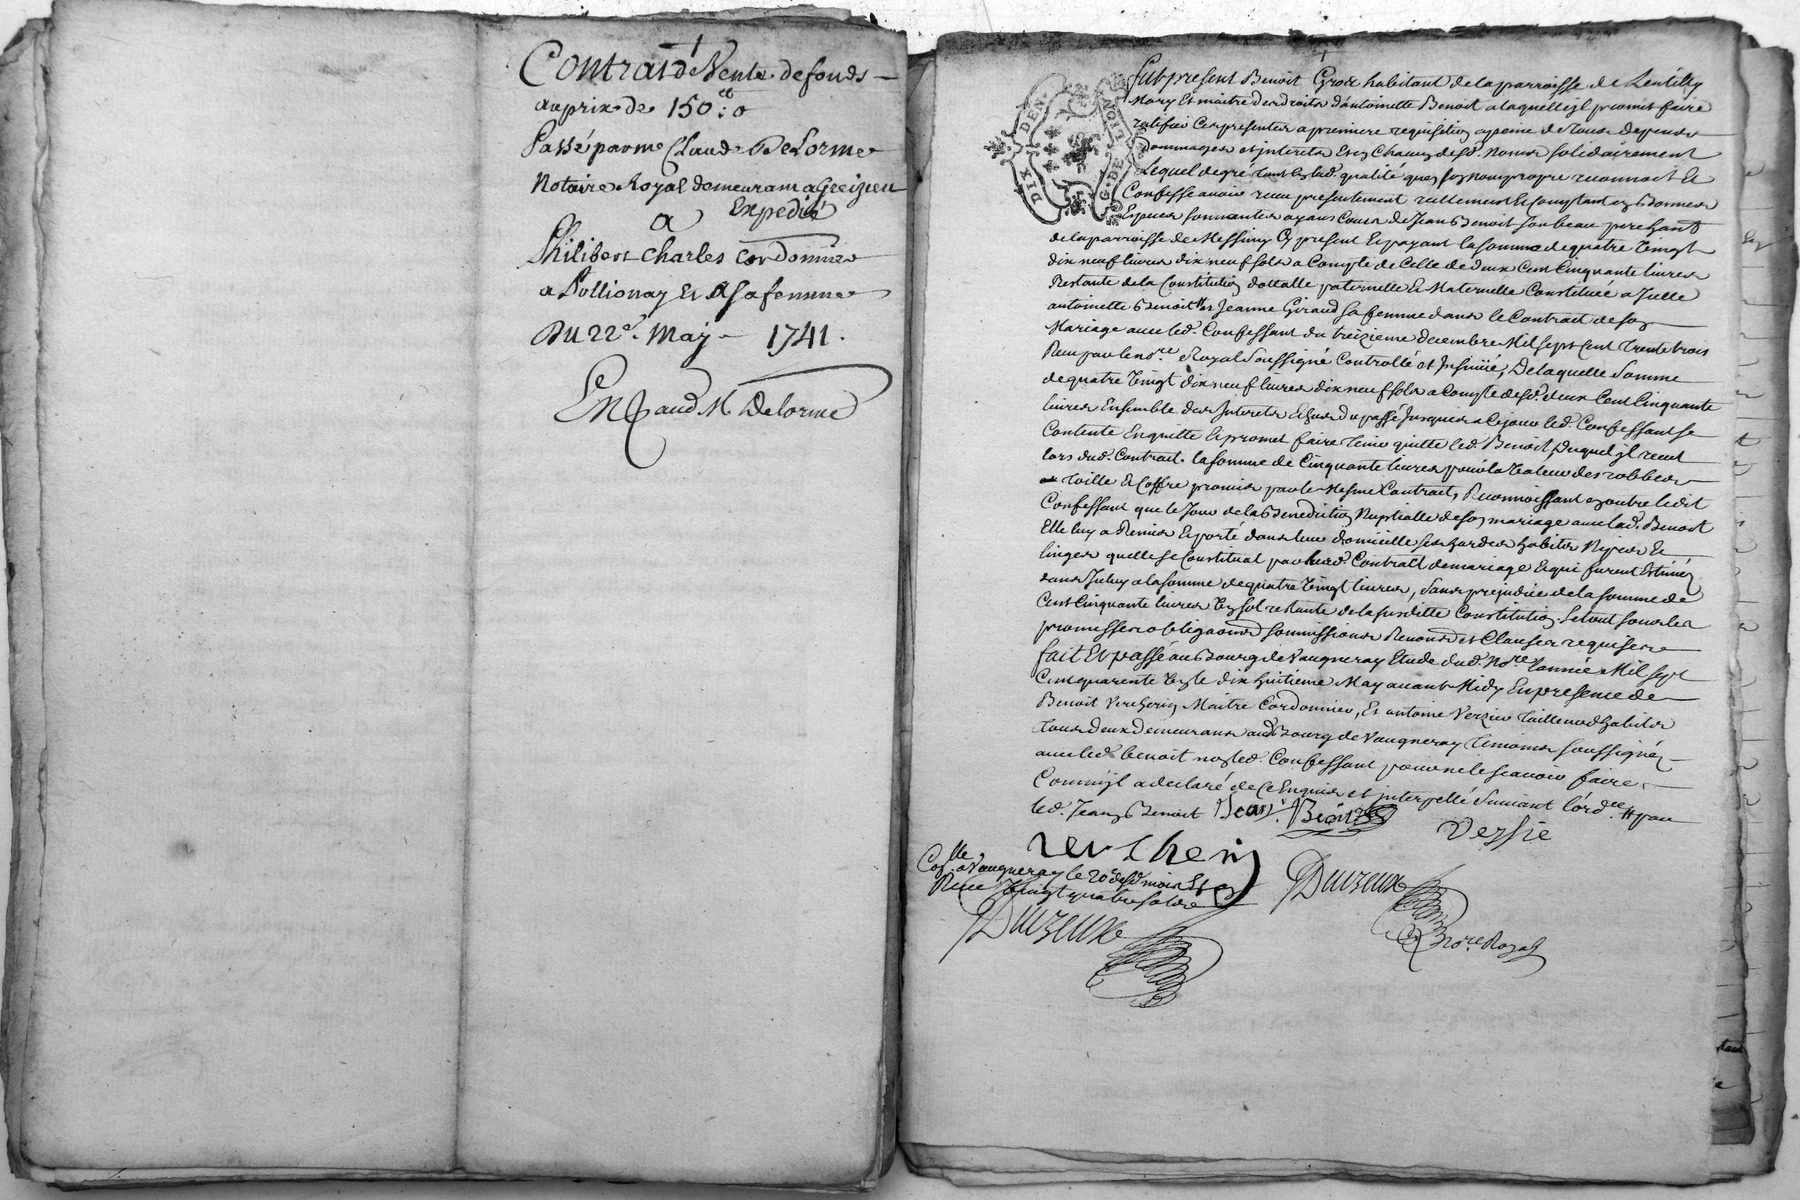 Contrat de Vente de fonds
au prix de 150 ₶ : 0
Passé par me Claude Delorme
Notaire Royal demeurant a Greizieu
Expedié
a
Philibert Charles Cordonnier
a Pollionay Et a sa femme
Du 22e. May 1741.
Delorme
DIX DEN.
G. DE LION
fut present Benoit Groz habitant de la parroisse de Lentilly
Mary Et maitre des droits d'antoinette Benoit a laquelle jl promet faire
ratifier Ces presentes a premiere requisition a peine de tous depens
Dommages et interets Et en Chacun desd. noms solidairement
Lequel de gré tant En lad. qualité que en son nom propre reconnoit Et
Confesse avoir receu presentement reellement Et Comptant en Bonnes
Especes sonnantes ayans Cours de Jean Benoit son beau pere hant
de la parroisse de Messimy Cy present Et payant la somme de quatre Vingt
dix neuf livres dix neuf sols a Compte de Celle de deux Cent Cinquante livres
Restante de la Constitution dottalle paternelle Et Maternelle Constituée a Jcelle
antoinette Benoit Jeanne Giraud sa femme dans le Contract de son
Mariage avec led. Confessant du treizieme decembre Mil sept Cent Trente trois
Receu par le nore. Royal Soussigné Controllé et Insinüé, De laquelle Somme
de quatre Vingt dix neuf livres dix neuf sols a Compte desd. deux Cent Cinquante
livres Ensemble des Interets du passé Jusques a Ce jour led. Confessant se
Contente En quitte Et promet faire tenir quitte led. Benoit, Duquel jl receut
lors dud. Contract la somme de Cinquante livres pour la Valeur des robbes
Toille Et Coffre promis par le Mesme Contract, Reconnoissant en outre ledit
Confessant que le Jour de la Benediction Nuptialle de son mariage avec lad. Benoit
Elle luy a Remis Et porté dans leur domicille ses hardes habits Nipes Et
linges quelle se Constitual par leurd. Contract de mariage Et qui furent Estimés
dans Iceluy a la somme de quatre Vingt livres, sans prejudice de la somme de
Cent Cinquante livres Un sol restante de la susditte Constitution. Le tout sous les
promesses obligations soumissions Renond. et Clauses requises
fait Et passé au Bourg de Vaugneray Etude dud. Nore. l'année Mil sept
Cent quarente Un le dix huitieme May avant Midy En presence de
Benoit Vercherin Maitre Cordonnier, Et antoine Verzier Tailleur d'habits
tous deux demeurans aud. Bourg de Vaugneray temoins soussignés
avec led. benoit non led. Confessant pour ne le sçavoir faire
Comm'jl a declaré de Ce Enquis et jnterpellé Suivant l'ord.ce
led. Jean Benoit Jean Benoit
Versie
vercherin
Conllé. a Vaugneray le 20e desd. mois Et an
Receu Vingt quatre sols
Duizeux
Duizeux
Nore. Royal